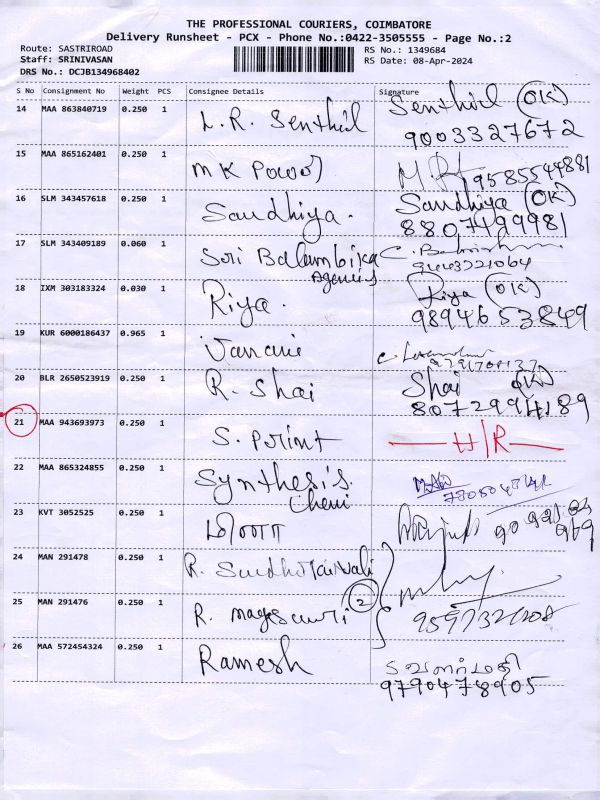 THE PROFESSIONAL COURIERS, COIMBATORE
Delivery Runsheet - PCX - Phone No.:0422-3505555 - Page No.:2
Route: SASTRIROAD RS No.: 1349684
Staff: SRINIVASAN RS Date: 08-Apr-2024
DRS No.: DCJB134968402
S No Consignment No Weight PCS Consignee Details Signature
14 MAA 863840719 0.250 1 L.R. Senthil Senthil (OK)
9003327672
15 MAA 865162401 0.250 1 M K Power 9585544881
16 SLM 343457618 0.250 1 Sandhiya. Sandhiya (OK)
8807499981
17 SLM 343409189 0.060 1 Sri Balambika
Agencies 9443721064
18 IXM 303183324 0.030 1 Riya. Riya (OK)
9894653849
19 KUR 6000186437 0.965 1 Janani
20 BLR 2650523919 0.250 1 R. Shai Shai (OK)
8072994189
21 MAA 943693973 0.250 1 S. Print H/R
22 MAA 865324855 0.250 1 Synthesis
Chem
23 KVT 3052525 0.250 1 மீனா
24 MAN 291478 0.250 1 R.
25 MAN 291476 0.250 1 R. Mageswari (2)
26 MAA 572454324 0.250 1 Ramesh வளர்மதி
9790478905